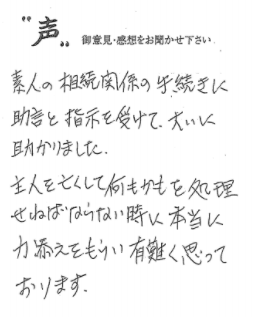 "声" 御意見・感想をお聞かせ下さい
素人の相続関係の手続きに
助言と指示を受けて、大いに
助かりました.
主人を亡くして何もかもを処理
せねばならない時に本当に
力添えをもらい有難く思って
おります.